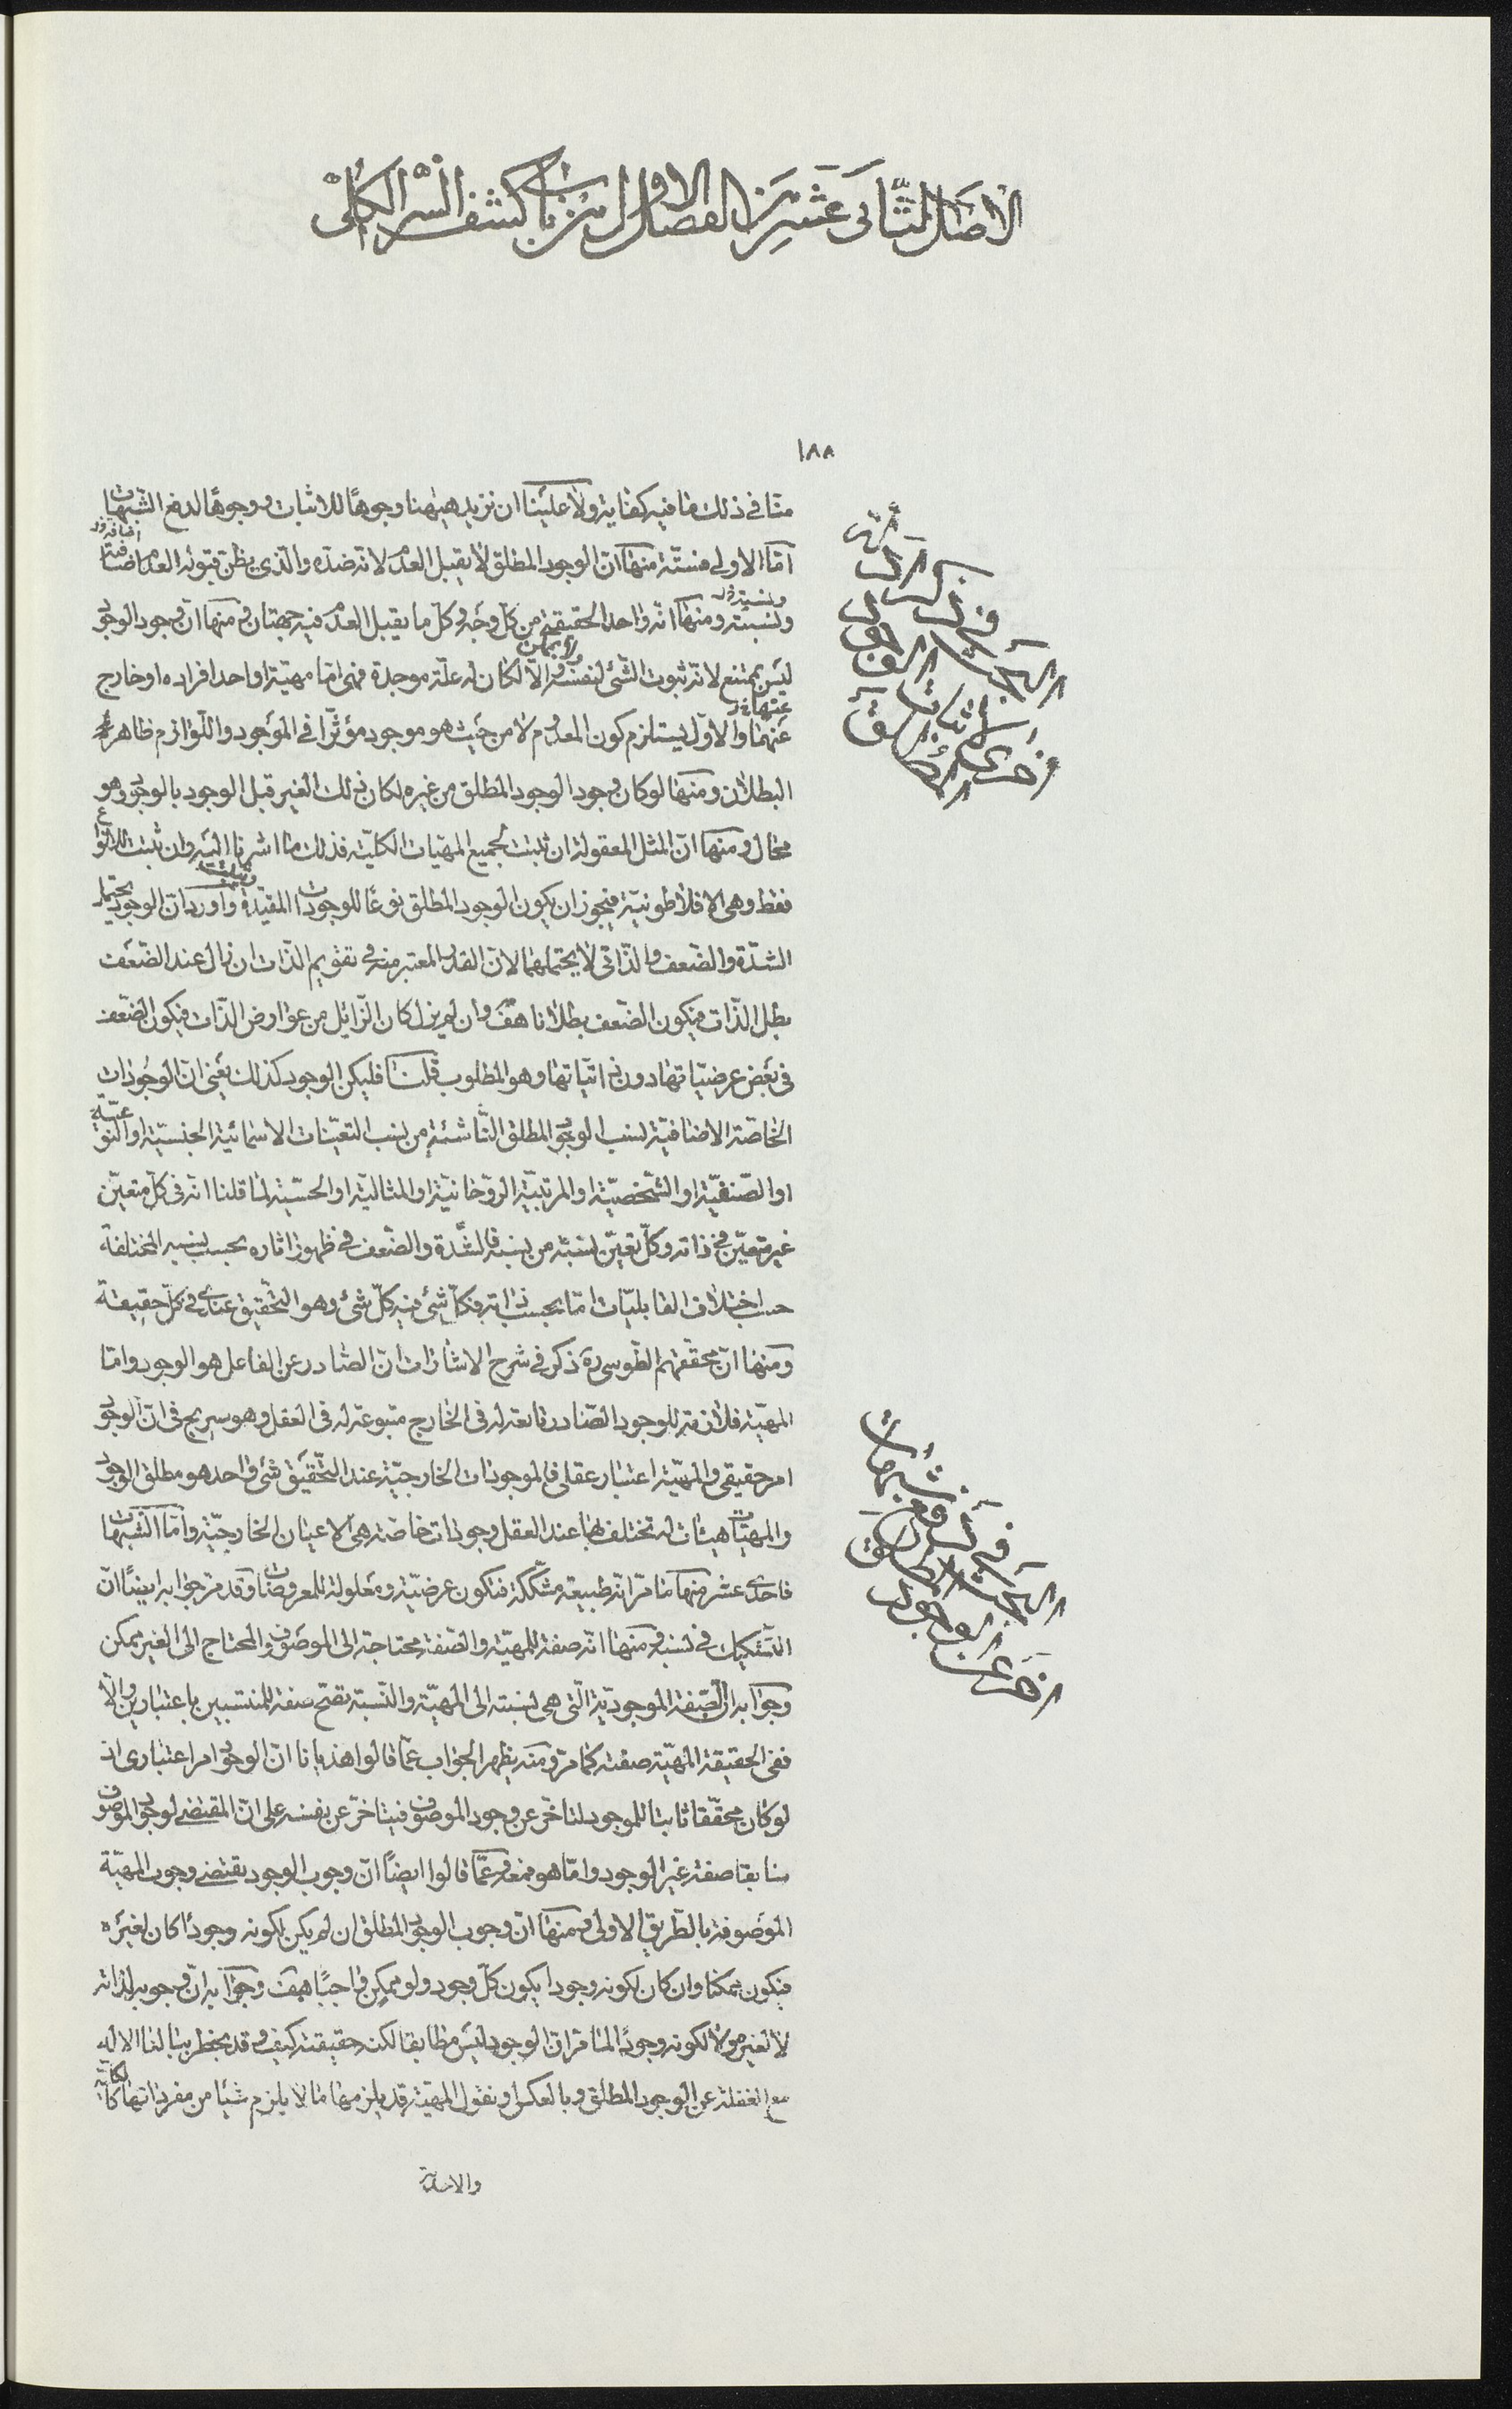 الاصل الثانى عشر من الفصل الاول من باب كشف السر الكلى
١٨٨
منا فى ذلك ما فيه كفاية ولا علينا ان نزيد ههنا وجوها للاثبات ووجوها لدفع الشبهات
اما الاولى فستة منها ان الوجود المطلق لا يقبل العدم لانه ضده والذى يظن قبوله العدم اضافته
ونسبته ومنها انه واحد الحقيقة من كل وجه وكل ما يقبل العدم فيه جهتان ومنها ان وجود الوجود
ليس بممتنع لانه ثبوت الشئ لنفسه ولا بممكن والا لكان له علة موجدة فهى اما مهيته او احد افراده او خارج
عنهما والاول يستلزم كون المعدوم لا من حيث هو موجود مؤثرا فى الموجود واللوازم ظاهرة
البطلان ومنها لو كان وجود الوجود المطلق من غيره لكان ذلك الغير قبل الوجود بالوجود وهو
محال ومنها ان المثل المعقولة ان ثبت لجميع المهيات الكلية فذلك ما اشرنا اليه وان ثبت للانواع
فقط وهى الافلاطونية فيجوز ان يكون الوجود المطلق نوعا للوجودات المقيدة واورد ان الوجود يحتمل
الشدة والضعف والذاتى لا يحتملهما لان القدر المعتبر منه فى تقويم الذات ان زال عند الضعف
بطل الذات فيكون الضعف بطلانا هف وان لم يزل كان الزايل من عوارض الذات فيكون الضعف
فى بعض عرضياتها دون ذاتياتها وهو المطلوب قلنا فليكن الوجود كذلك يعنى ان الوجودات
الخاصة الاضافية لنسب الوجود المطلق الناشئة من نسب التعينات الاسمائية الجنسية او النوعية
او الصنفية او الشخصية او المرتبية الروحانية او المثالية او الحسية لما قلنا انه فى كل متعين
غير متعين فى ذاته وكل تعين نسبة من نسبه فالشدة والضعف فى ظهور اثاره بحسب نسبه المختلفة
حسب اختلاف القابليات اما بحسب ذاته فكل شئ فيه كل شئ وهو التحقيق عندى فى كل حقيقة
ومنها ان محققهم الطوسى ره ذكر فى شرح الاشارات ان الصادر عن الفاعل هو الوجود واما
المهية فلازمة للوجود الصادر تابعة له فى الخارج متبوعة له فى العقل وهو صريح فى ان الوجود
امر حقيقى والمهية اعتبار عقلى فالموجودات الخارجية عند التحقيق شئ واحد هو مطلق الوجود
والمهيات هيئات له تختلف بها عند العقل وجودات خاصة هى الاعيان الخارجية واما الشبهات
فاحدى عشر منها ما مر انه طبيعة مشككة فتكون عرضية ومعلولة للمعروضات وقد مر جوابه ايضا ان
التشكيك فى نسبه ومنها انه صفة للمهية والصفة محتاجة الى الموصوف والمحتاج الى الغير ممكن
وجوابه ان الصفة الموجودية التى هى نسبته الى المهية والنسبة تقع صفة للمنتسبين باعتبارين والا
ففى الحقيقة المهية صفته كما مر ومنه يظهر الجواب عما قالوا هذيانا ان الوجود امر اعتبارى اذ
لو كان محققا ثابتا للموجود لتاخر عن وجود الموصوف فيتاخر عن نفسه على ان المقتضى لوجود الموصوف
سابقا صفة غير الوجود واما هو فمع وعما قالوا ايضا ان وجوب الوجود يقتضى وجوب المهية
الموصوفة بالطريق الاولى ومنها ان وجوب الوجود المطلق ان لم يكن لكونه وجودا كان لغيره
فيكون ممكنا وان كان لكونه وجودا يكون كل وجود ولو ممكن واجبا هف وجوابه ان وجوبه لذاته
لا لغيره ولا لكونه وجودا لما مر ان الوجود ليس مطابقا لكنه حقيقته كيف وقد يخطر ببالنا الاله
مع الغفلة عن الوجود المطلق وبالعكس ونقول المهية قد يلزمها ما لا يلزم شيئا من مفرداتها كالكلية
والاحدية
البحث فى ذكر ادلة
اخرى لاثبات الوجود المطلق
البحث فى دفع شبهات
اخر عن الوجود المطلق